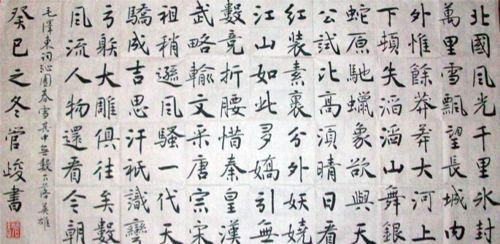 北國風光千里冰封
萬里雪飄望長城內
外惟餘莽莽大河上
下頓失滔滔山舞銀
蛇原馳蠟象欲與天
公試比高須晴日看
紅裝素裹分外妖嬈
江山如此多嬌引無
數竞折腰惜秦皇漢
武略輸文采唐宗宋
祖稍遜風騷一代天
驕成吉思汗祇識彎
弓射大雕俱往矣數
風流人物還看今朝
毛澤東詞沁園春雪其中無數下落英雄
癸巳之冬管峻書